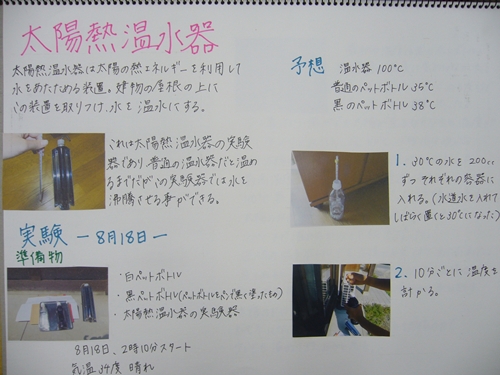 太陽熱温水器
太陽熱温水器は太陽の熱エネルギーを利用して
水をあたためる装置。建物の屋根の上に
この装置を取りつけ、水を温水にする。
これは太陽熱温水器の実験
器であり、普通の温水器だと温め
るまでだがこの実験器では水を
沸騰させる事ができる。
実験 -8月18日-
準備物
・白ペットボトル
・黒ペットボトル(ペットボトルをスプレーで黒く塗ったもの)
・太陽熱温水器の実験器
8月18日、2時10分スタート
気温34度 晴れ
予想 温水器 100℃
普通のペットボトル 35℃
黒のペットボトル 38℃
1、30℃の水を200cc
ずつそれぞれの容器に
入れる。(水道水を入れて
しばらく置くと30℃になった)
2、10分ごとに温度を
計かる。